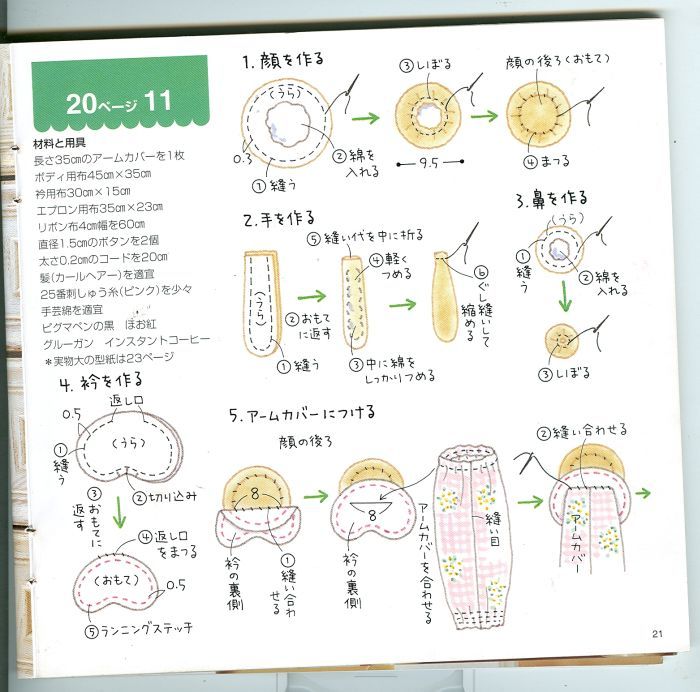 20ページ 11
材料と用具
長さ35cmのアームカバーを1枚
ボディ用布45cm×35cm
衿用布30cm×15cm
エプロン用布35cm×23cm
リボン布4cm幅を60cm
直径1.5cmのボタンを2個
太さ0.2cmのコードを20cm
髪(カールヘアー)を適宜
25番刺しゅう糸(ピンク)を少々
手芸綿を適宜
ピグマペンの黒 ほお紅
グルーガン インスタントコーヒー
*実物大の型紙は23ページ
1. 顔を作る
(うら)
0.3
①縫う
②綿を
入れる
③しぼる
9.5
顔の後ろ(おもて)
④まつる
2. 手を作る
(うら)
①縫う
②おもて
に返す
⑤縫い代を中に折る
④軽く
つめる
③中に綿を
しっかりつめる
⑥ぐし縫いして
縮める
3. 鼻を作る
(うら)
①縫う
②綿を
入れる
③しぼる
4. 衿を作る
返し口
0.5
(うら)
①縫う
②切り込み
③おもてに
返す
④返し口
をまつる
(おもて)
0.5
⑤ランニングステッチ
5. アームカバーにつける
顔の後ろ
8
衿の裏側
①縫い合わ
せる
8
衿の裏側
アームカバーを合わせる
縫い目
②縫い合わせる
アームカバー
21